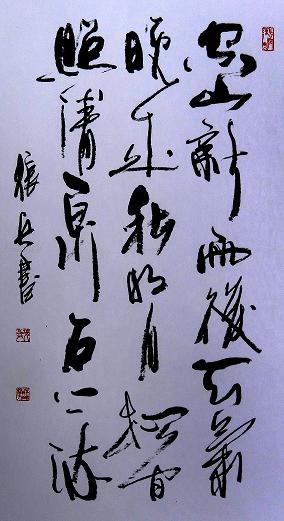 空山新雨後天氣
晚来秋明月松間
照清泉石上流
張書